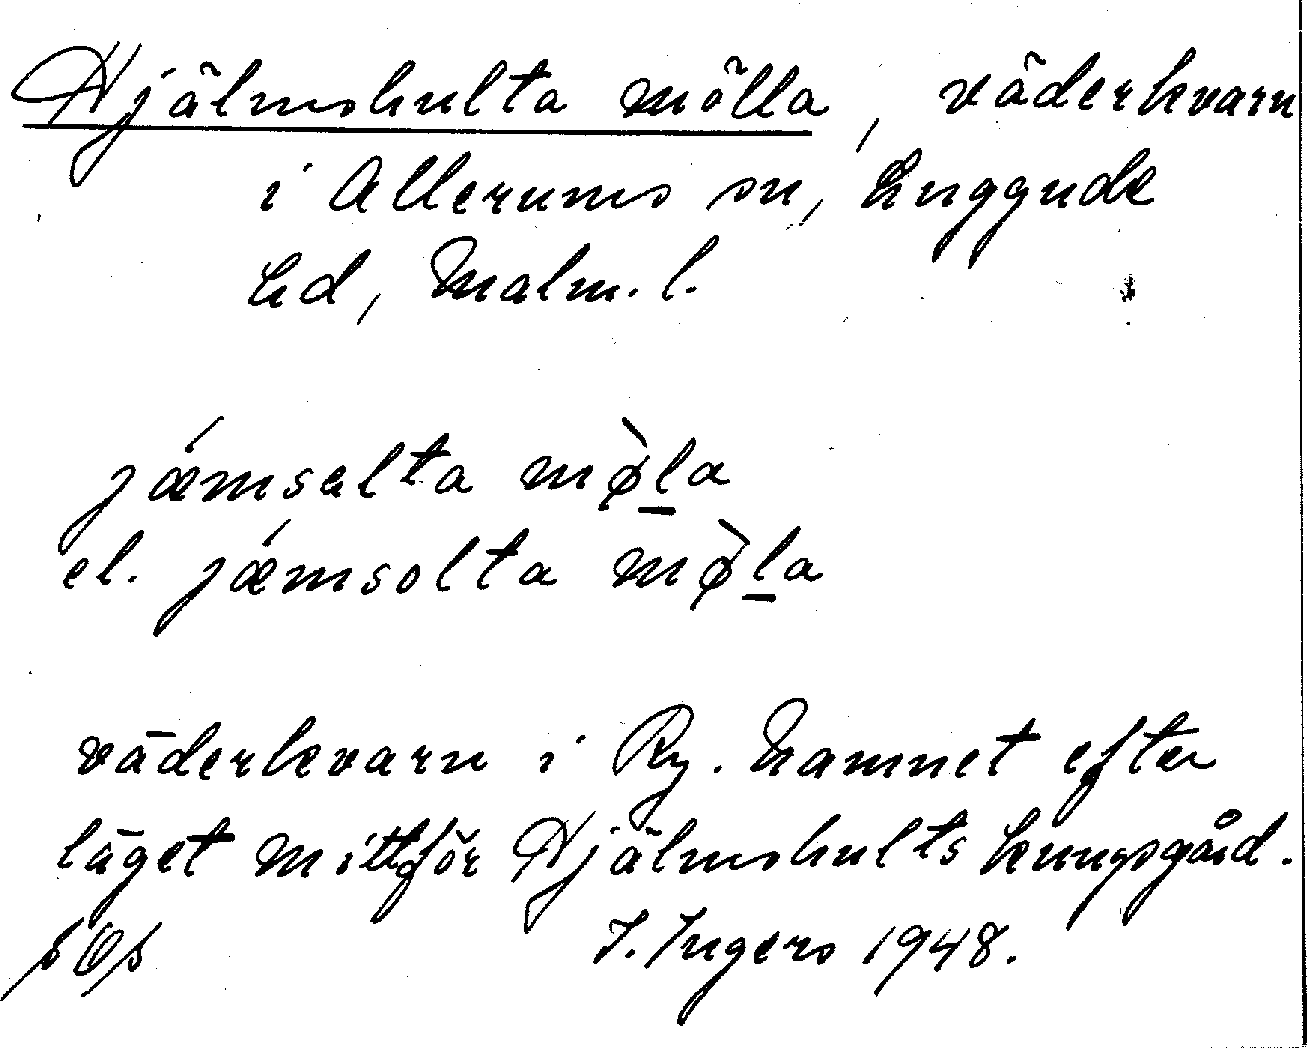 Hjälmshulta mölla, väderkvarn
i Allerums sn, Luggude
hd, Malm. l.
jǽmsalta mø̀l̲a
el. jǽmsolta mø̀l̲a
väderkvarn i Ry. Namnet efter
läget mittför Hjälmshults kungsgård.
I. Ingers 1948.